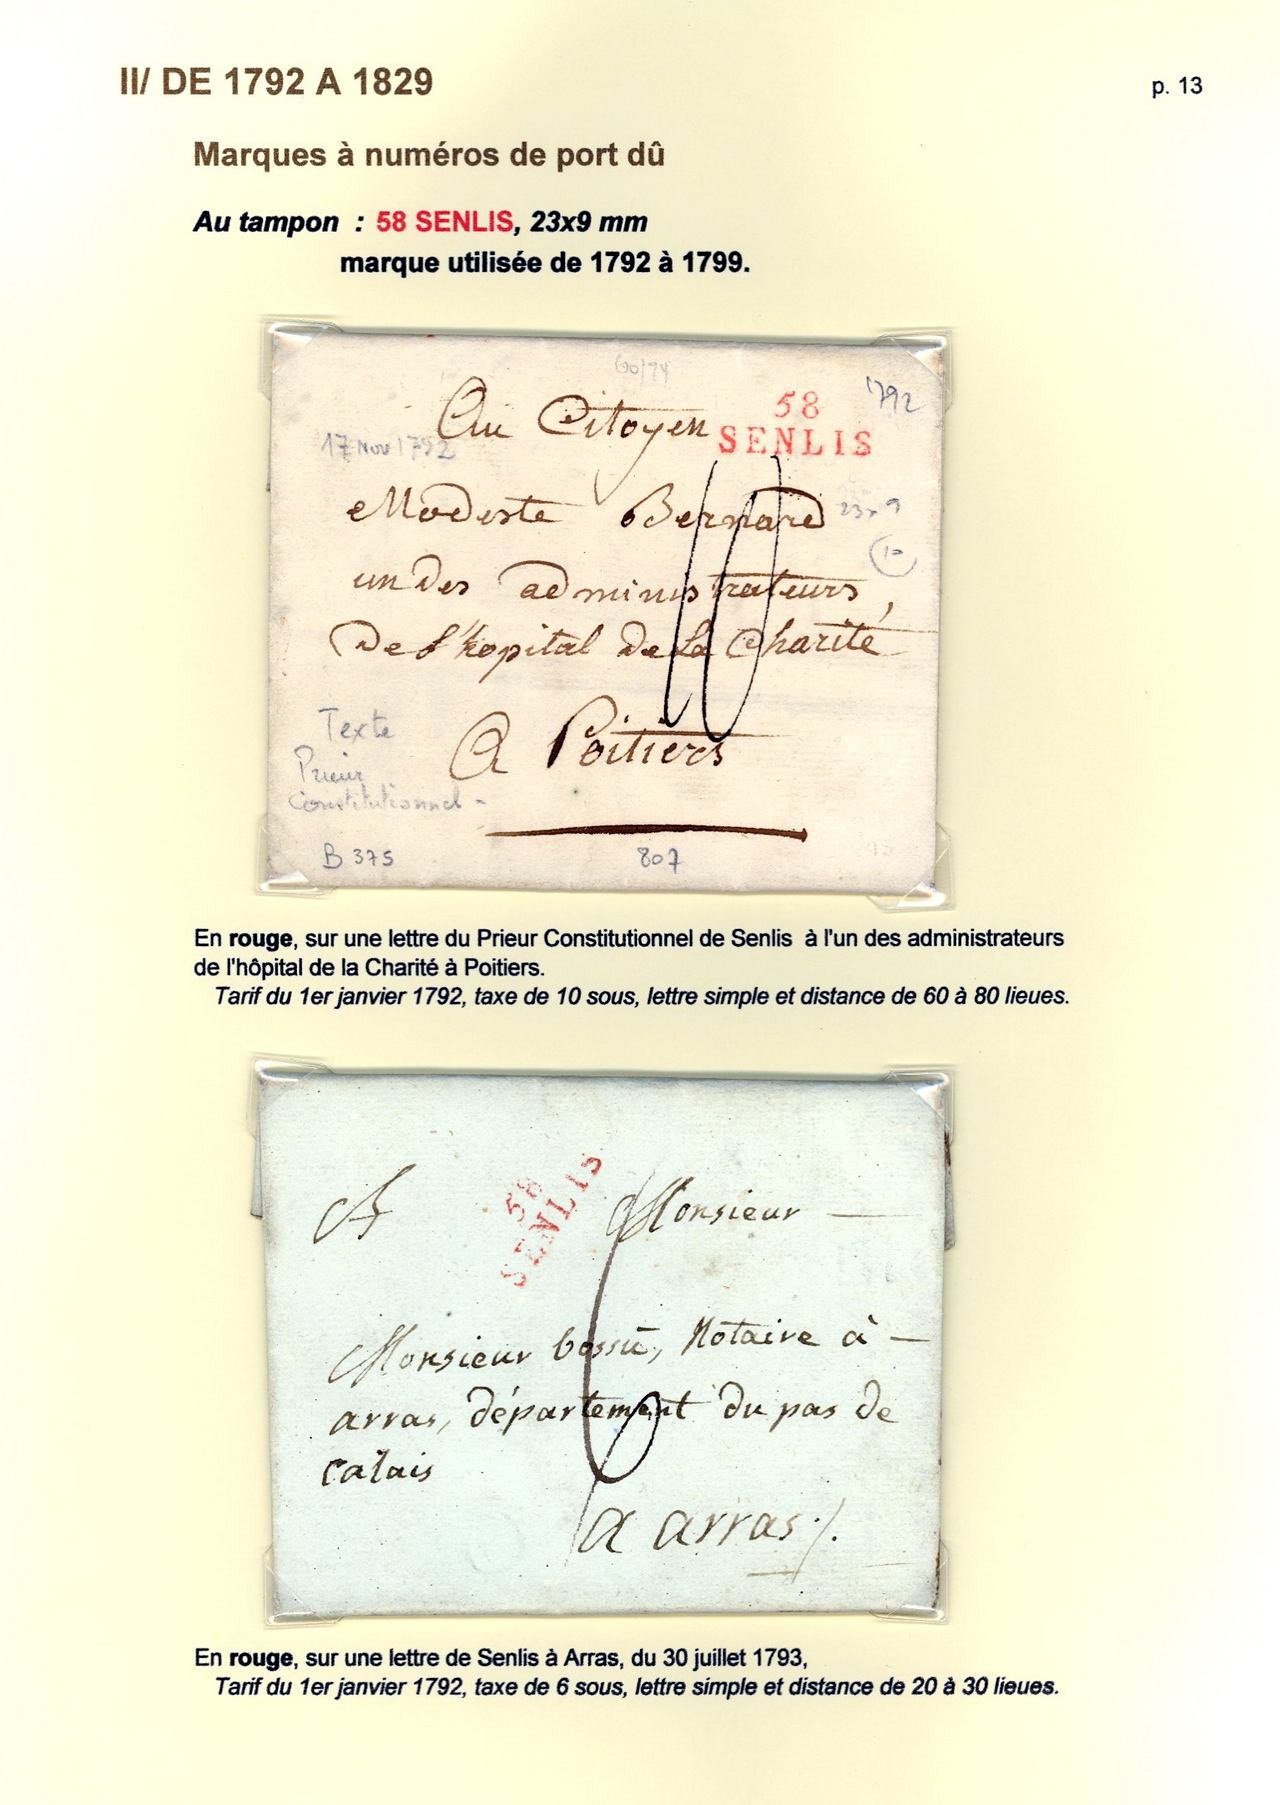 II/ DE 1792 A 1829
p. 13
Marques à numéros de port dû
Au tampon : 58 SENLIS, 23x9 mm
marque utilisée de 1792 à 1799.
60/74
1792
58
SENLIS
Au Citoyen
17 Nov 1792
Modeste Bernard
23x9
10
un des administrateurs,
De l'hopital de La Charité
10
Texte
A Poitiers
Prieur
Constitutionnel -
B 375
807
En rouge, sur une lettre du Prieur Constitutionnel de Senlis à l'un des administrateurs
de l'hôpital de la Charité à Poitiers.
Tarif du 1er janvier 1792, taxe de 10 sous, lettre simple et distance de 60 à 80 lieues.
58
SENLIS
A Monsieur
Monsieur bossu, Notaire à
arras, département du pas de
calais
6
a arras /.
En rouge, sur une lettre de Senlis à Arras, du 30 juillet 1793,
Tarif du 1er janvier 1792, taxe de 6 sous, lettre simple et distance de 20 à 30 lieues.